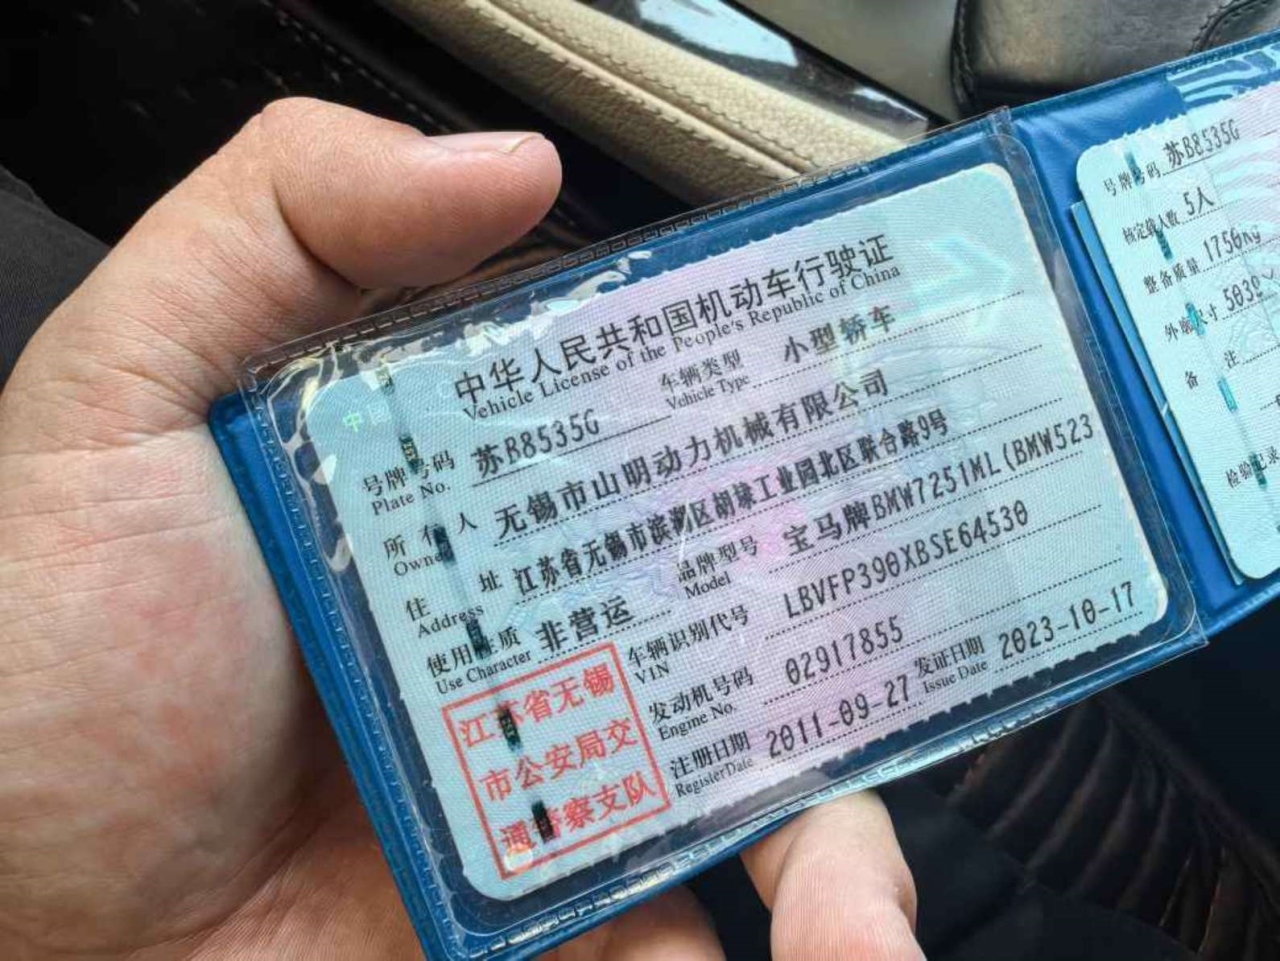 中华人民共和国机动车行驶证
Vehicle License of the People's Republic of China
号牌号码 苏B8535G 车辆类型 小型轿车
Plate No. Vehicle Type
所有人 无锡市山明动力机械有限公司
Owner
住址 江苏省无锡市滨湖区胡埭工业园北区联合路9号
Address
使用性质 非营运 品牌型号 宝马牌BMW7251ML(BMW523
Use Character Model
车辆识别代号 LBVFP390XBSE64530
VIN
发动机号码 02917855
Engine No.
注册日期 2011-09-27 发证日期 2023-10-17
Register Date Issue Date
江苏省无锡
市公安局交
通警察支队
号牌号码 苏B8535G
核定载人数 5人
整备质量 1750kg
外廓尺寸 5039
备注
检验记录